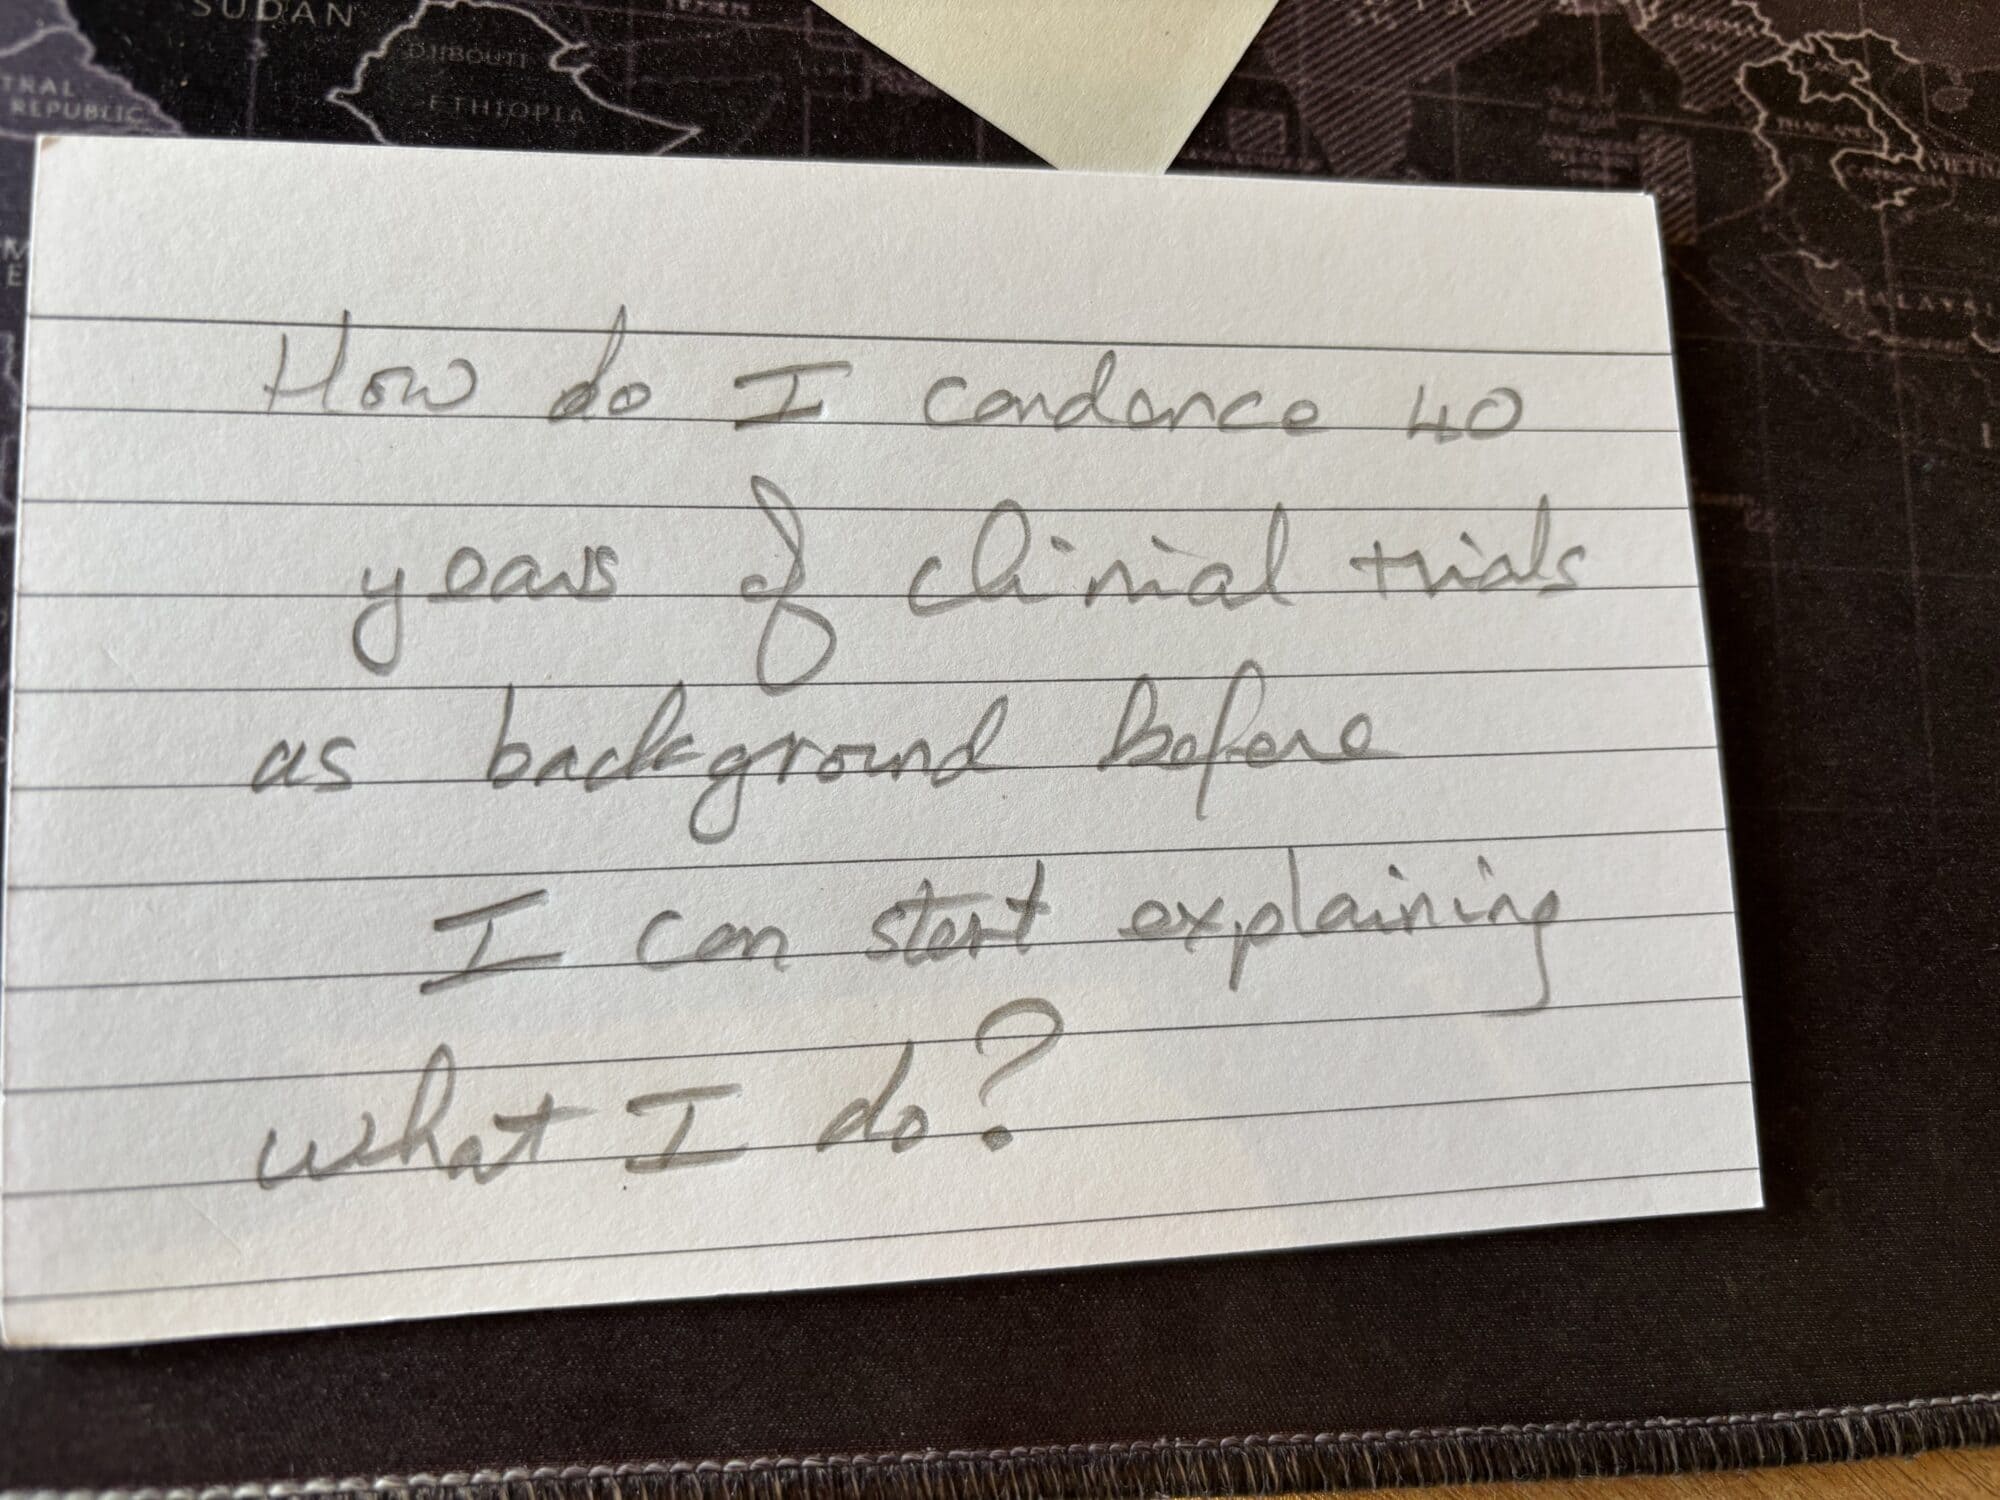 SUDAN
DJIBOUTI
ETHIOPIA
REPUBLIC
THAILAND
MALAYSIA
How do I condence 40
years of clinical trials
as background before
I can start explaining
what I do?